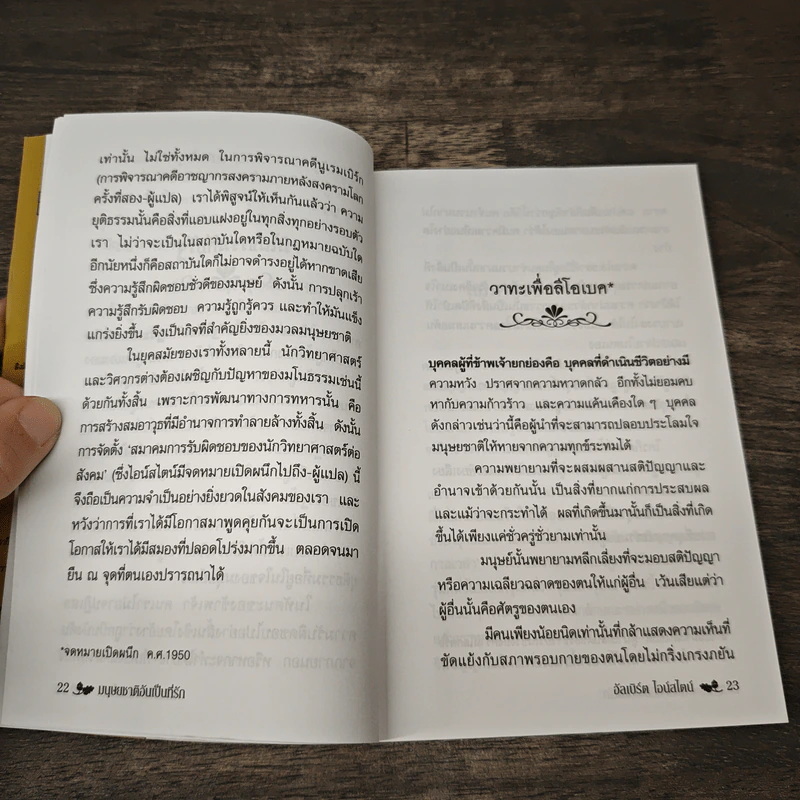 เท่านั้น ไม่ใช่ทั้งหมด ในการพิจารณาคดีนูเรมเบิร์ก
(การพิจารณาคดีอาชญากรสงครามภายหลังสงครามโลก
ครั้งที่สอง-ผู้แปล) เราได้พิสูจน์ให้เห็นกันแล้วว่า ความ
ยุติธรรมนั้นคือสิ่งที่แอบแฝงอยู่ในทุกสิ่งทุกอย่างรอบตัว
เรา ไม่ว่าจะเป็นในสถาบันใดหรือในกฎหมายฉบับใด
อีกนัยหนึ่งก็คือสถาบันใดก็ไม่อาจดำรงอยู่ได้หากขาดเสีย
ซึ่งความรู้สึกผิดชอบชั่วดีของมนุษย์ ดังนั้น การปลุกเร้า
ความรู้สึกรับผิดชอบ ความรู้ถูกรู้ควร และทำให้มันแข็ง
แกร่งยิ่งขึ้น จึงเป็นกิจที่สำคัญยิ่งของมวลมนุษยชาติ
ในยุคสมัยของเราทั้งหลายนี้ นักวิทยาศาสตร์
และวิศวกรต่างต้องเผชิญกับปัญหาของมโนธรรมเช่นนี้
ด้วยกันทั้งสิ้น เพราะการพัฒนาทางการทหารนั้น คือ
การสร้างสมอาวุธที่มีอำนาจการทำลายล้างทั้งสิ้น ดังนั้น
การจัดตั้ง 'สมาคมการรับผิดชอบของนักวิทยาศาสตร์ต่อ
สังคม' (ซึ่งไอน์สไตน์มีจดหมายเปิดผนึกไปถึง-ผู้แปล) นี้
จึงถือเป็นความจำเป็นอย่างยิ่งยวดในสังคมของเรา และ
หวังว่าการที่เราได้มีโอกาสมาพูดคุยกันจะเป็นการเปิด
โอกาสให้เราได้มีสมองที่ปลอดโปร่งมากขึ้น ตลอดจนมา
ยืน ณ จุดที่ตนเองปรารถนาได้
*จดหมายเปิดผนึก ค.ศ.1950
22 มนุษยชาติอันเป็นที่รัก
วาทะเพื่อลีโอเบค*
บุคคลผู้ที่ข้าพเจ้ายกย่องคือ บุคคลที่ดำเนินชีวิตอย่างมี
ความหวัง ปราศจากความหวาดกลัว อีกทั้งไม่ยอมคบ
หากับความก้าวร้าว และความแค้นเคืองใด ๆ บุคคล
ดังกล่าวเช่นว่านี้คือผู้นำที่จะสามารถปลอบประโลมใจ
มนุษยชาติให้หายจากความทุกข์ระทมได้
ความพยายามที่จะผสมผสานสติปัญญาและ
อำนาจเข้าด้วยกันนั้น เป็นสิ่งที่ยากแก่การประสบผล
และแม้ว่าจะกระทำได้ ผลที่เกิดขึ้นมานั้นก็เป็นสิ่งที่เกิด
ขึ้นได้เพียงแค่ชั่วครู่ชั่วยามเท่านั้น
มนุษย์นั้นพยายามหลีกเลี่ยงที่จะมอบสติปัญญา
หรือความเฉลียวฉลาดของตนให้แก่ผู้อื่น เว้นเสียแต่ว่า
ผู้อื่นนั้นคือศัตรูของตนเอง
มีคนเพียงน้อยนิดเท่านั้นที่กล้าแสดงความเห็นที่
ขัดแย้งกับสภาพรอบกายของตนโดยไม่กริ่งเกรงภยัน
อัลเบิร์ต ไอน์สไตน์ 23